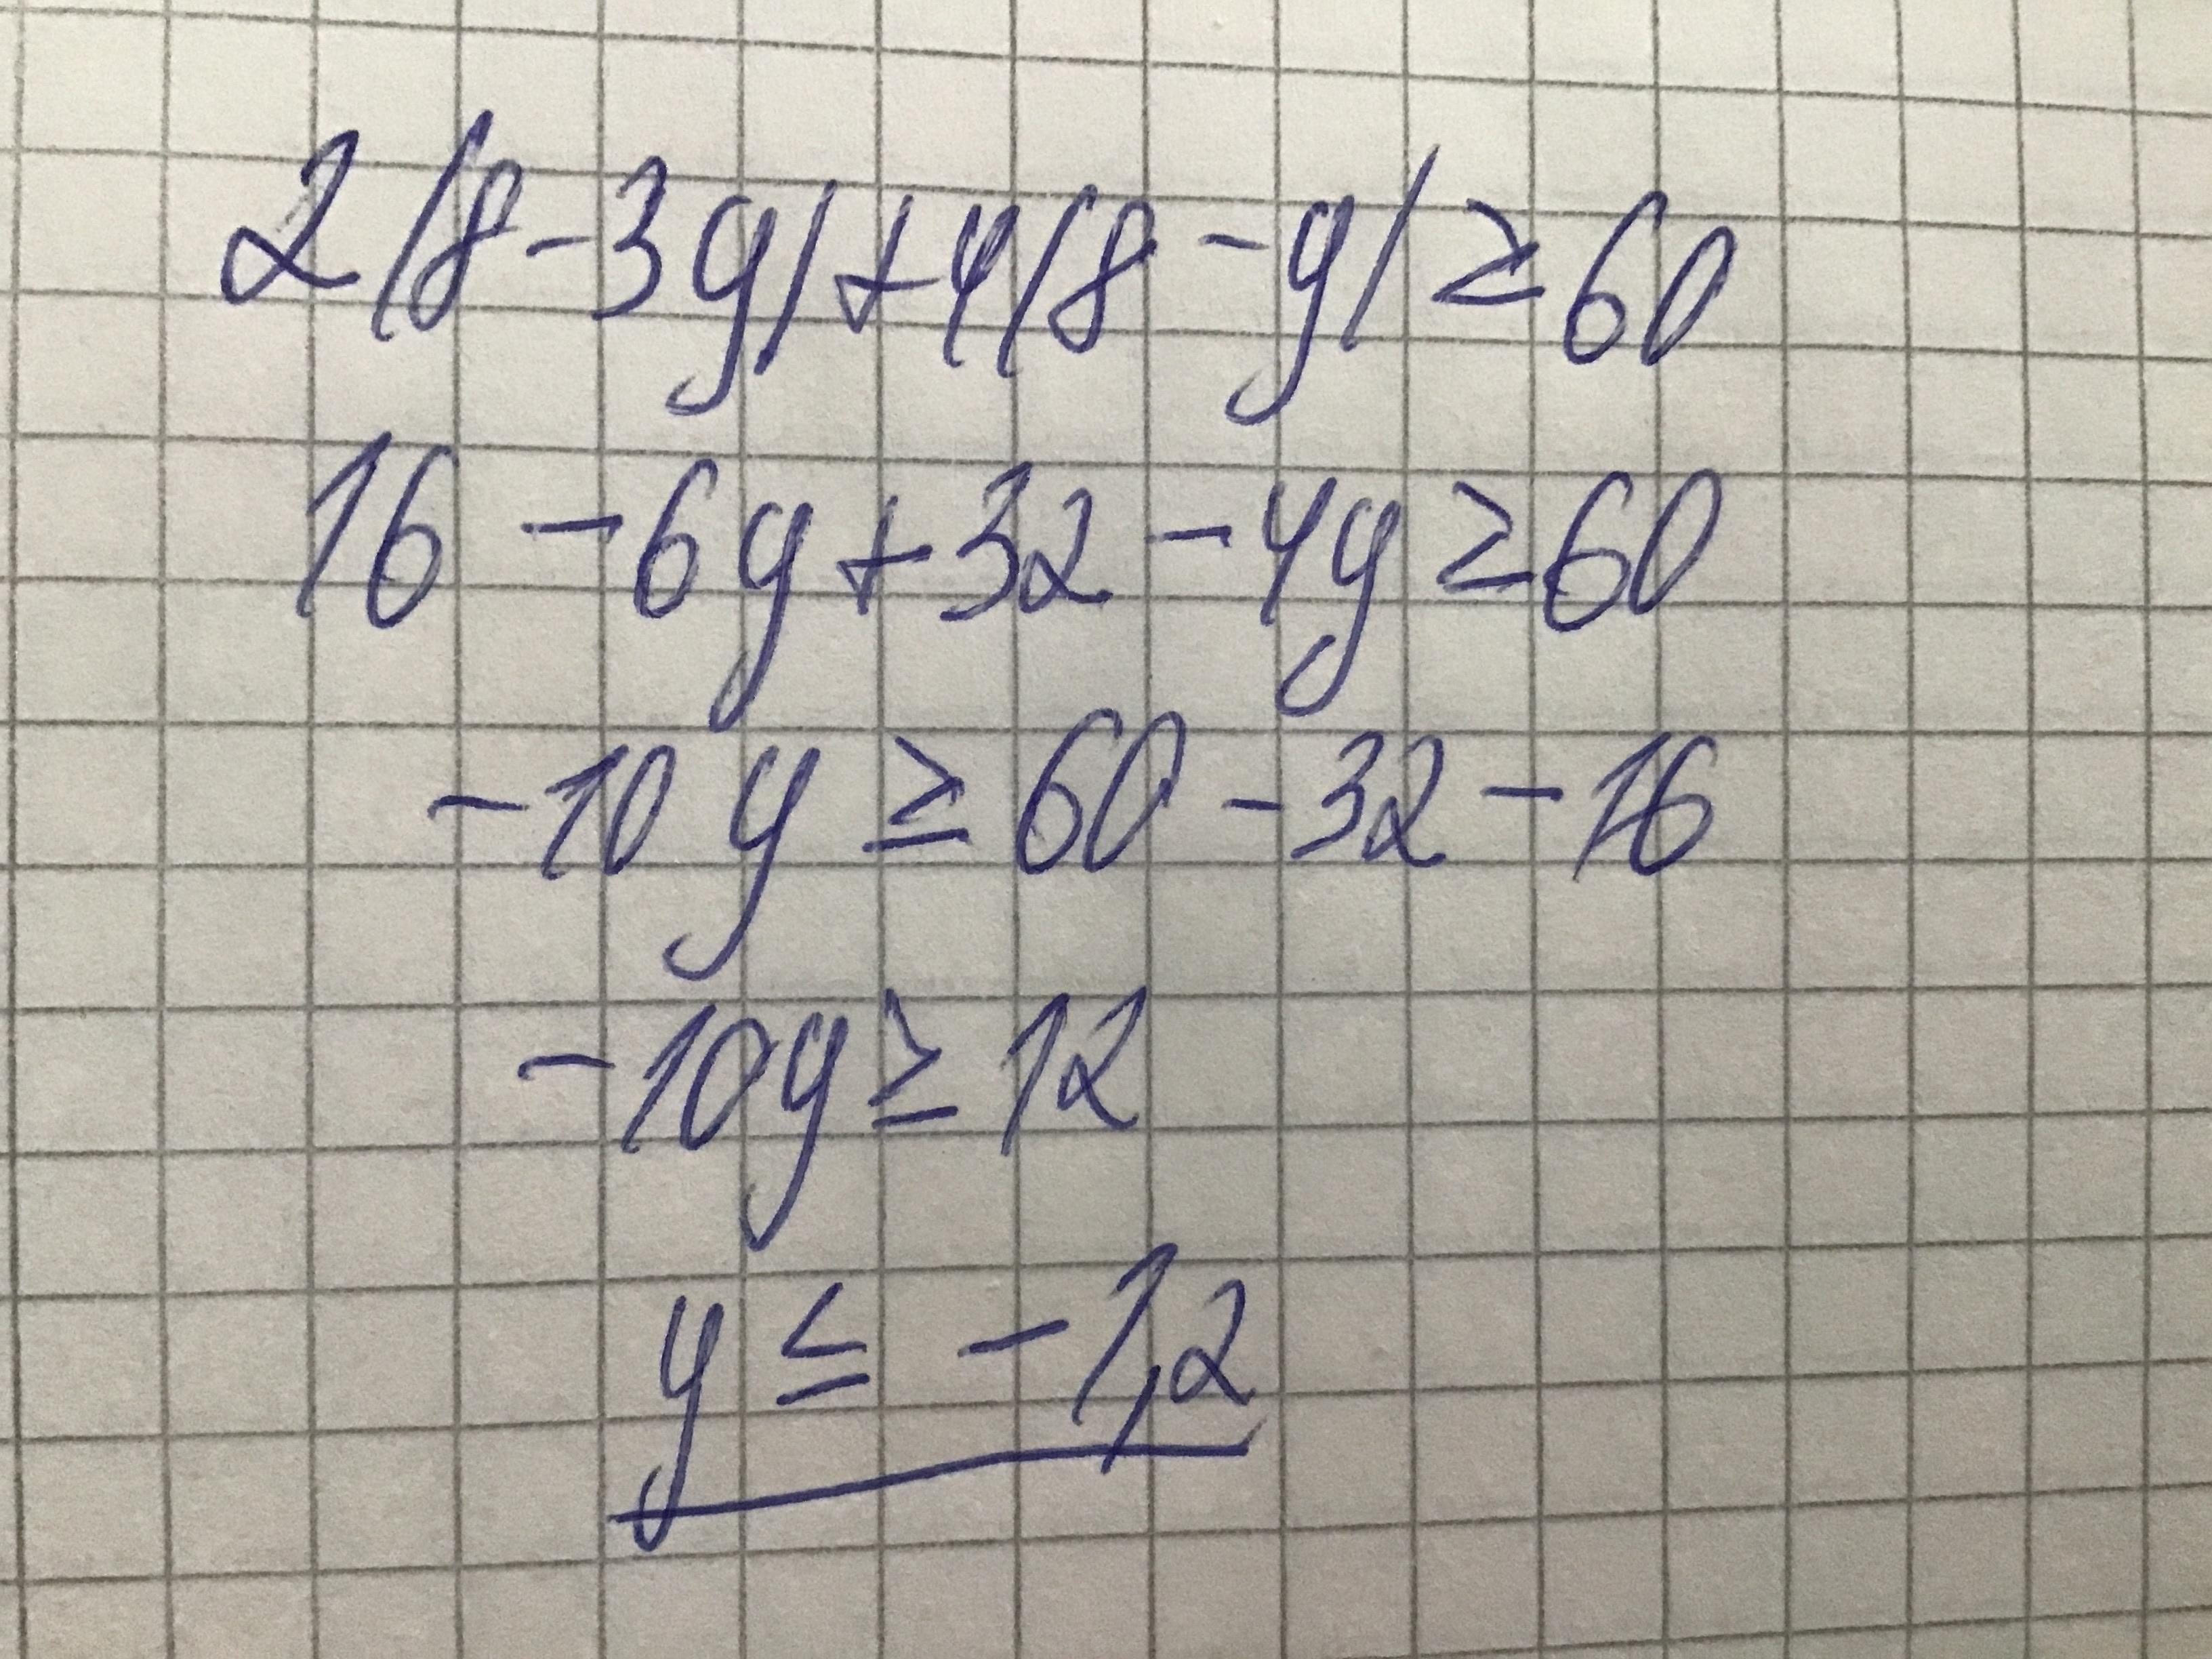 2(8-3y)+4(8-y)≥60
16-6y+32-4y≥60
-10y≥60-32-16
-10y≥12
y≤-1,2